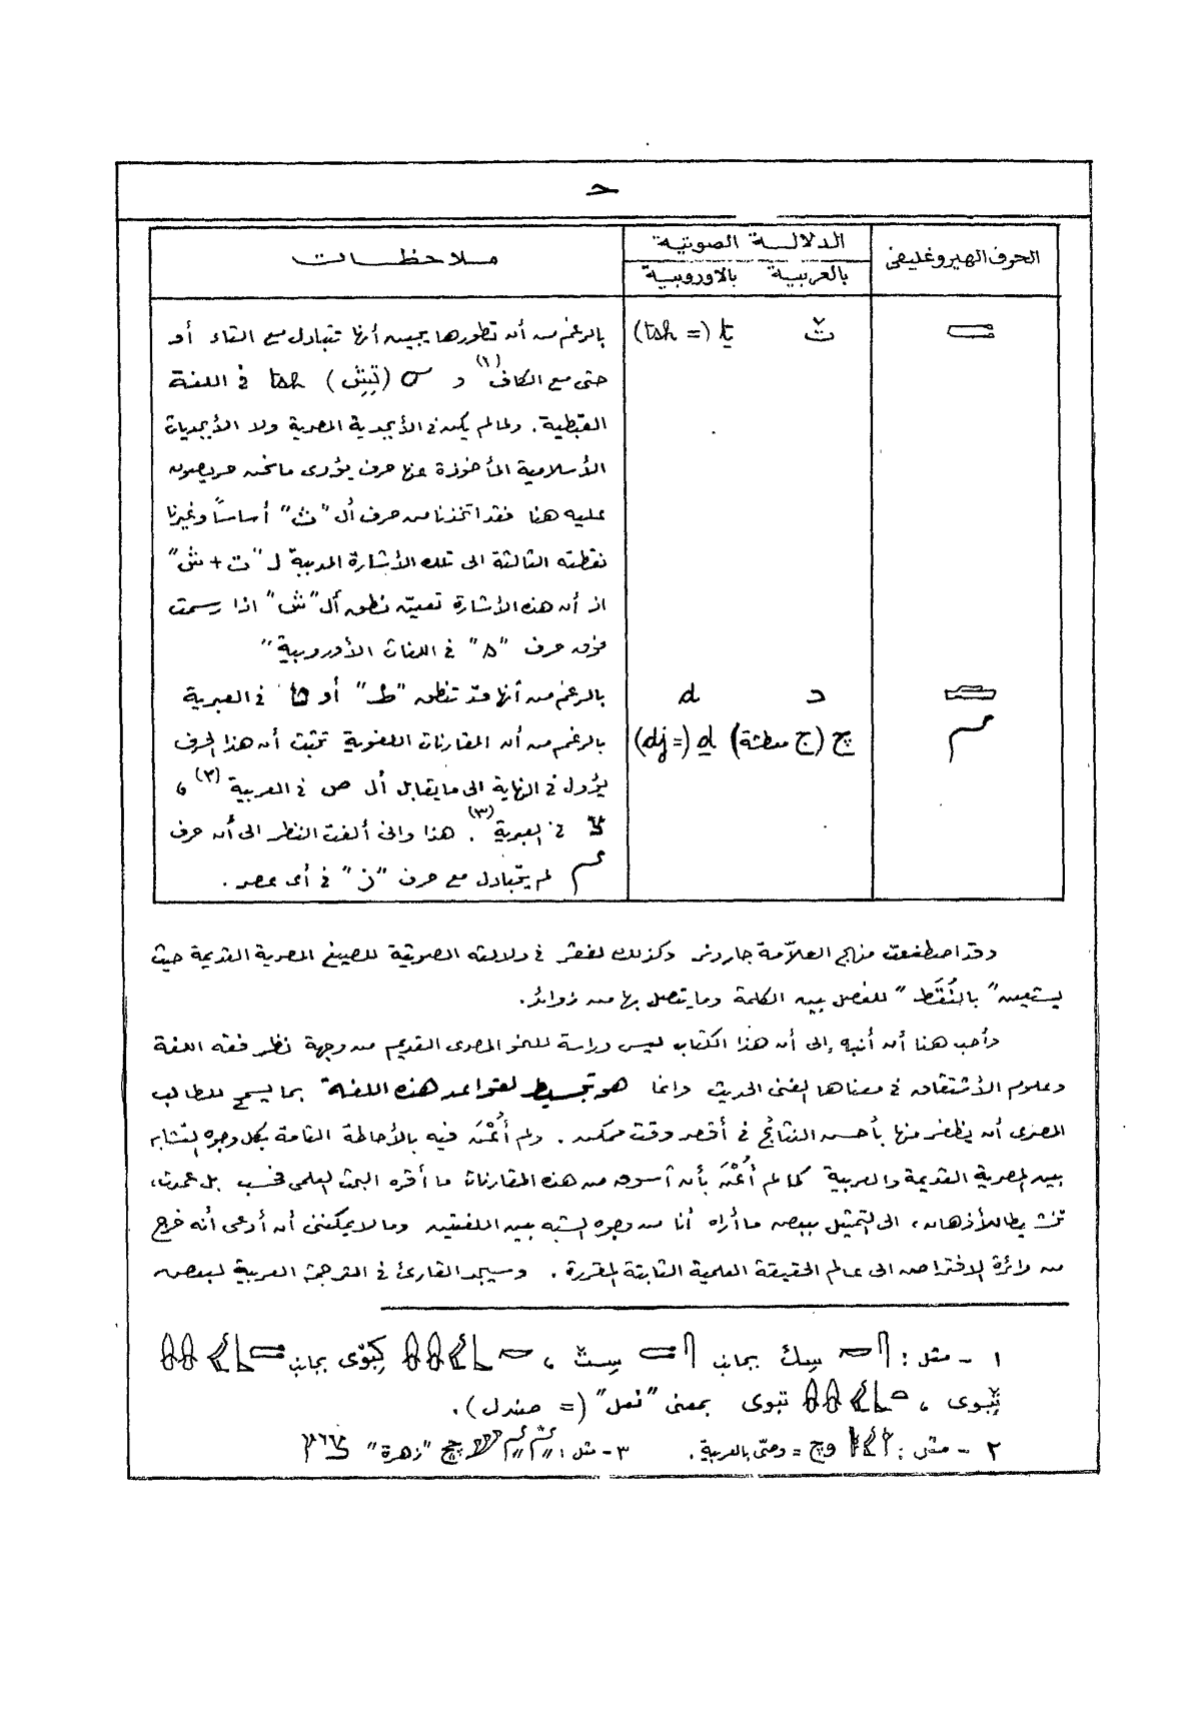 ح
الحرف الهيروغليفى الدلالة الصوتية ملاحظات
بالعربية بالأوروبية
ṯ (= tsh) بالرغم من أن تطورها يجيب أنها تتبادل مع التاء أو
حتى مع الكاف (١) و ϭ (تِيتش) tsh فى اللغة
القبطية. ولما لم يكن فى الأبجدية المصرية ولا الأبجديات
الأسلامية المأخوذة عنها حرف يؤدى ما نحن حريصون
عليه هنا فقد اتخذنا من حرف أل "ث" أساساً وغيرنا
نقطته الثالثة الى تلك الأشارة المدببة لـ "ت + ش"
اذ أن هذه الأشارة تعين نطق أل "ش" اذا رسمت
فوق حرف "s" فى اللغات الأوروبية"
د d بالرغم من أنها قد تنطق "ط" أو ט فى العبرية
چ (ج معطشة) ḏ (= dj) بالرغم من أن المقارنات اللغوية تثبت أن هذا الحرف
يؤول فى النهاية الى ما يقابل أل ص فى العربية (٢) ،
צ فى العبرية (٣). هذا وانى ألفت النظر الى أن حرف
لم يتبادل مع حرف "ز" فى أى عصر.
وقد اصطنعت منهج العلاّمة جاردنر وكذلك لفڤر فى دلالته الصوتية للصيغ المصرية القديمة حيث
يستعين "بالنُقَط" للفصل بين الكلمة وما يتصل بها من زوائد.
وأحب هنا أن أنبه إلى أن هذا الكتاب ليس دراسة للنحو المصرى القديم من وجهة نظر فقه اللغة
وعلوم الأشتقاق فى معناها الفنى الحديث وانما هو تبسيط لقواعد هذه اللغة بما يسمح للطالب
المصرى أن يظفر منها بأحسن النتائج فى أقصر وقت ممكن. ولم أُعْنَ فيه بالأحاطة التامة بكل وجوه التشابه
بين المصرية القديمة والعربية كما لم أُعْنَ بأن أسوق من هذه المقارنات ما أقره البحث العلمى فحسب بل عمدت،
تنشيطا للأذهان، الى التمثيل ببعض ما أراه أنا من وجوه الشبه بين اللغتين وما لا يمكننى أن أدعى أنه خرج
من دائرة الافتراض الى عالم الحقيقة العلمية الثابتة المقررة. وسيجد القارئ فى الترجمة العربية لبعض
١ - مثل : سِك بجانب سِت ، كِبْوّى بجانب
تِبوى ، تبوى بمعنى "نعل" (= صندل).
٢ - مثل : وچ = وصّى بالعربية. ٣ - مثل : چچ "زهرة" ציץ